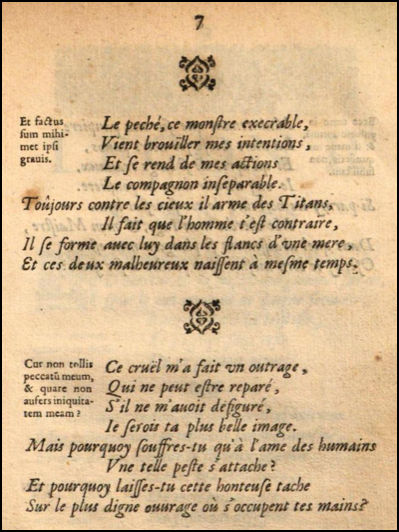 7
Et factus
sum mihi-
met ipsi
grauis.
Le peché, ce monstre execrable,
Vient broüiller mes intentions,
Et se rend de mes actions
Le compagnon inseparable.
Toûjours contre les cieux il arme des Titans,
Il fait que l'homme t'est contraire,
Il se forme auec luy dans les flancs d'vne mere,
Et ces deux malheureux naissent à mesme temps.
Cur non tollis
peccatũ meum,
& quare non
aufers iniquita-
tem meam?
Ce cruël m'a fait vn outrage,
Qui ne peut estre reparé,
S'il ne m'auoit défiguré,
Ie serois ta plus belle image.
Mais pourquoy souffres-tu qu'à l'ame des humains
Vne telle peste s'attache?
Et pourquoy laisses-tu cette honteuse tache
Sur le plus digne ouurage où s'occupent tes mains?